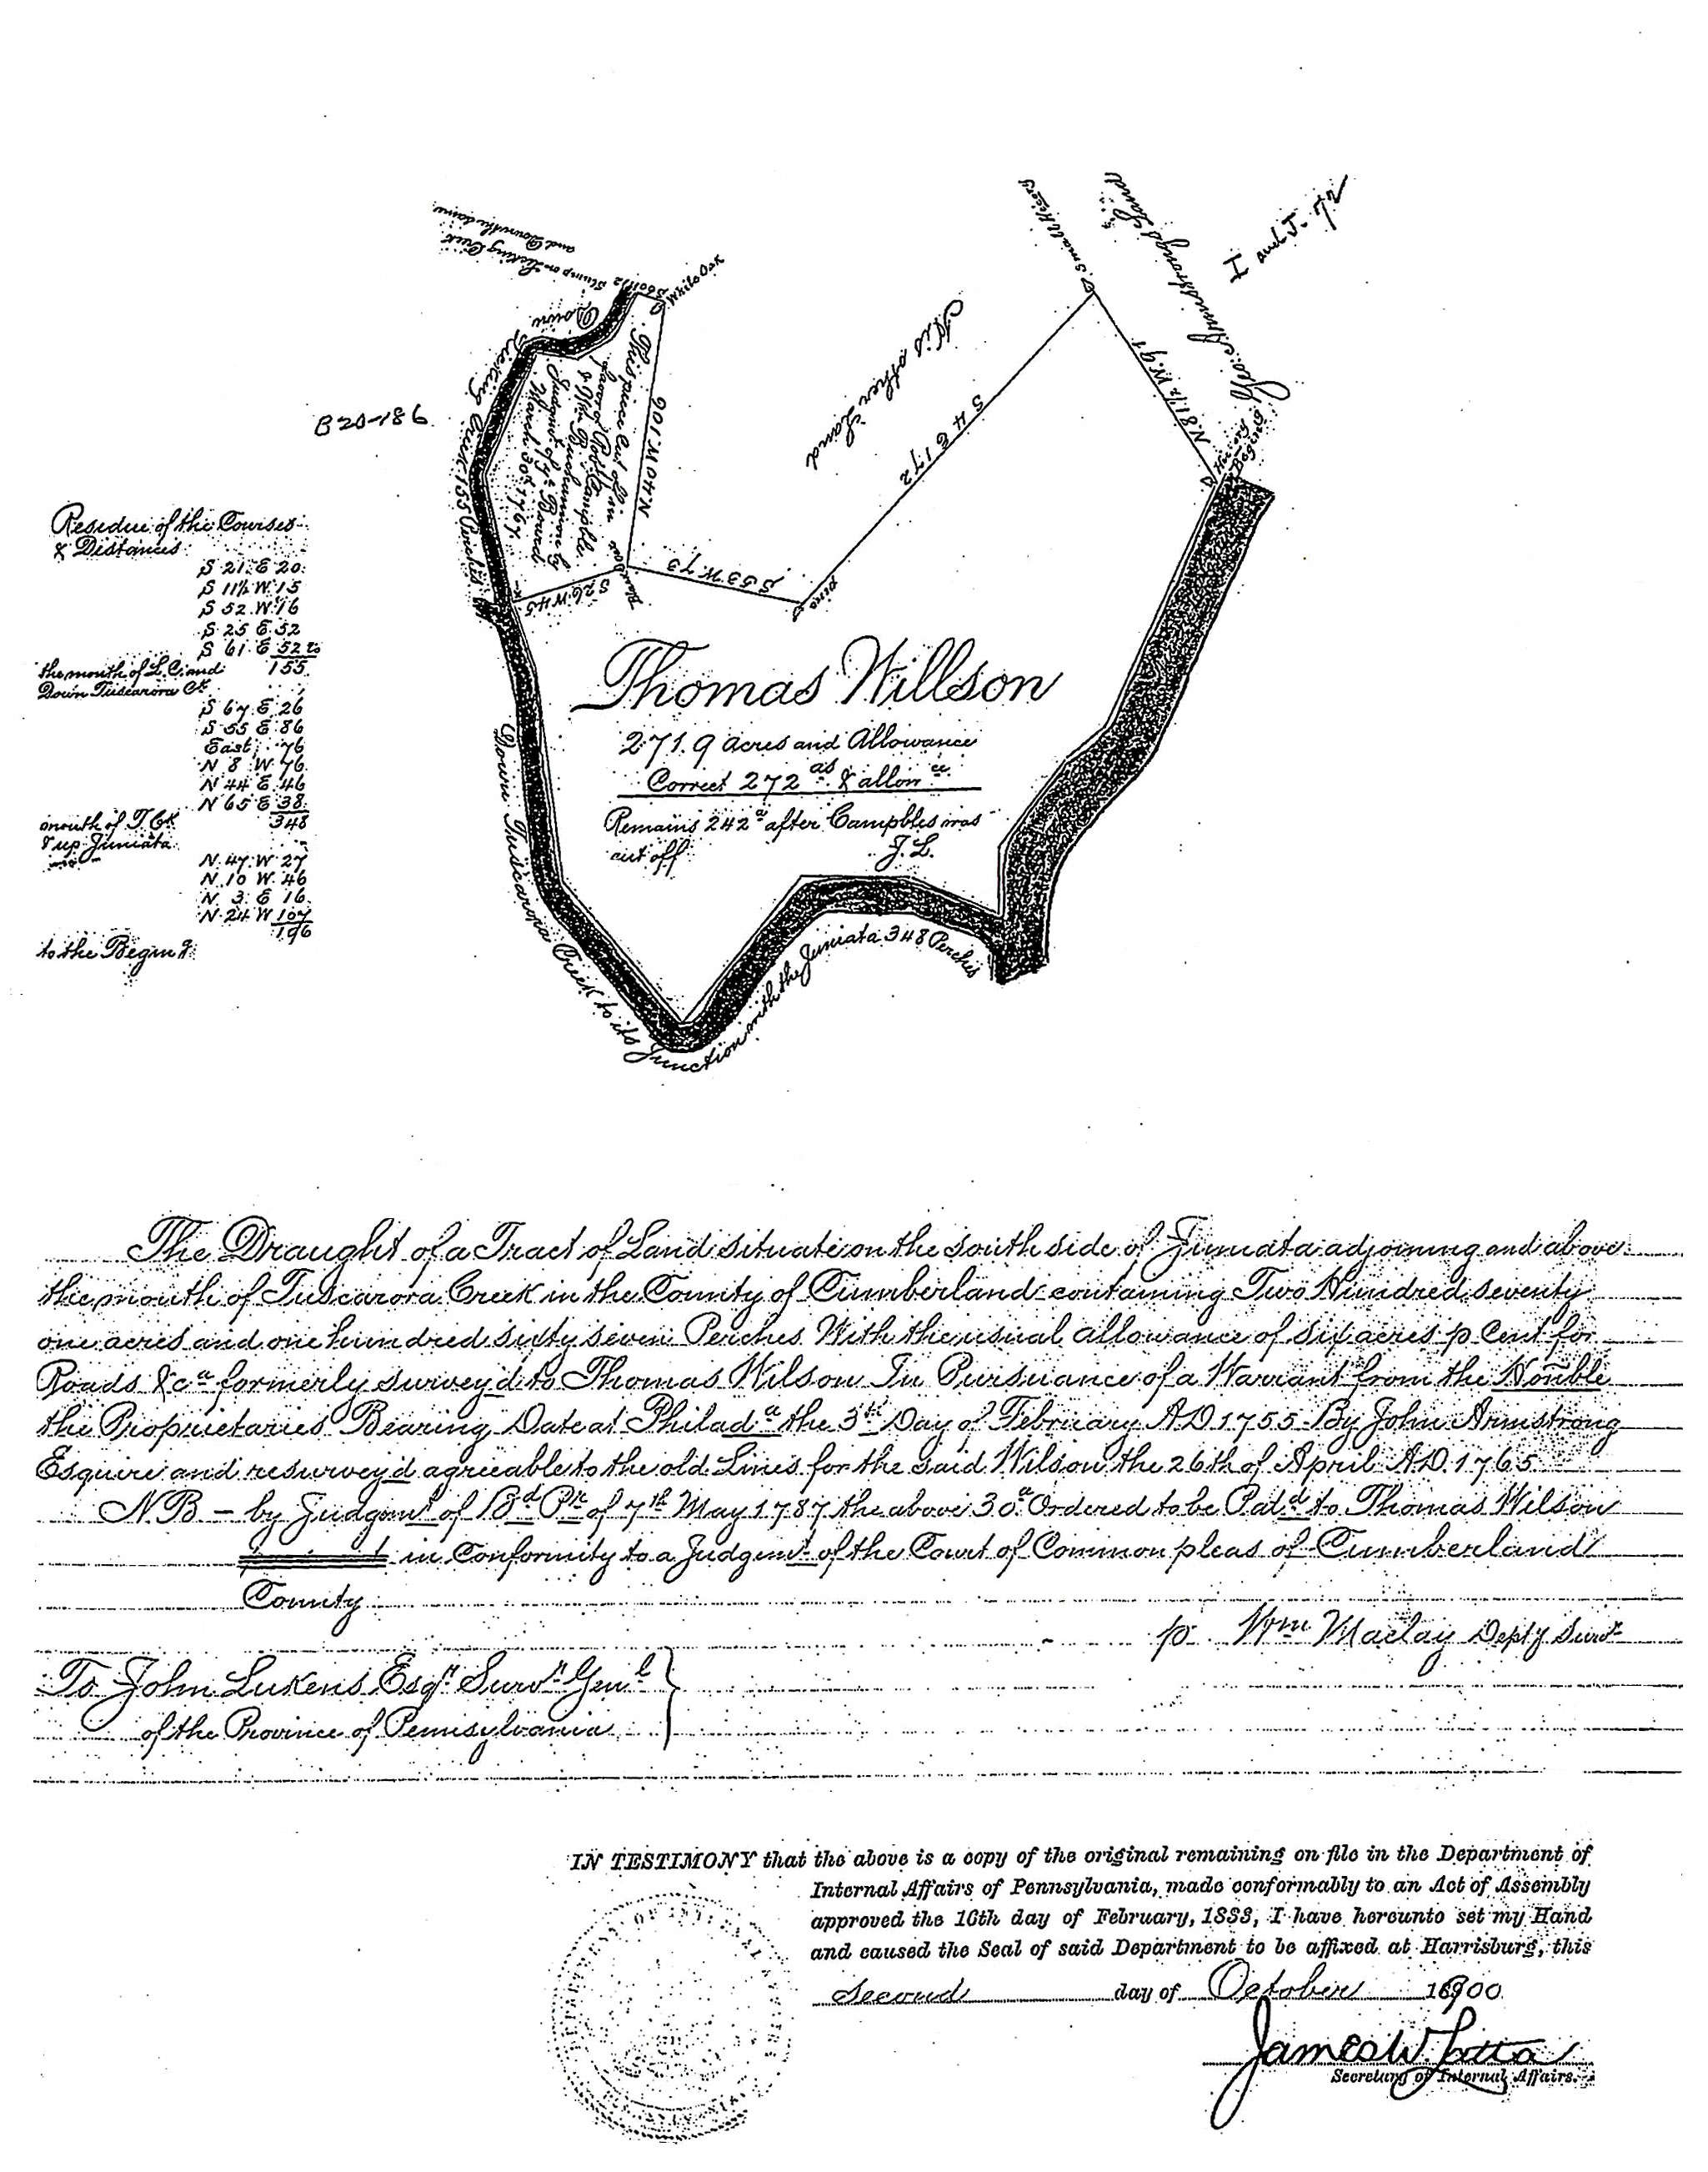 Stump on Licking Creek
and Down the same
S60W12
White Oak
Down
Licking Creek 155 Perches
This piece cut off in
favour of Robt Campble
& Wm Buchannon by
Judgmt of ye Board
March 30th 1767
N40W106
S26W45
S53W73
pine
His other Land
S4E172
a Small Hicory
Geo: Armstrongs Land
N81½W.91
I and J. 72
B20-186
Residue of the Courses
& Distances
S 21 E 20.
S 11½ W 15
S 52. W. 16
S 25 E. 52
S 61. E 52 to
the mouth of L.C. and 155
Down Tuscarora Ck.
S 67. E. 26
S 55 E 86
East. 76
N 8 W 76.
N 44 E 46
N 65 E 38.
mouth of T. Ck. 348
& up Juniata
N. 47. W. 27
N. 10 W. 46
N. 3. E 16.
N. 24 W 107
196
to the Beging.
Thomas Willson
271.9 acres and Allowance
Correct 272 as. & allowce.
Remains 242a after Campbles was
cut off J.L.
Down Tuscarora Creek to its Junction with the Juniata 348 Perches
The Draught of a Tract of Land situate on the south side of Juniata adjoining and above
the mouth of Tuscarora Creek in the County of Cumberland containing Two Hundred seventy
one acres and one hundred sixty seven Perches With the usual allowance of six acres p Cent for
Roads &ca formerly survey'd to Thomas Wilson In Pursuance of a Warrant from the Honble
the Proprietaries Bearing Date at Philada the 3th Day of February A.D. 1755 By John Armstrong
Esquire and resurvey'd agreeable to the old Lines for the said Wilson the 26th of April A.D. 1765
NB - by Judgmt of Bd Pty of 7th May 1787 the above 30a Ordered to be Patd to Thomas Wilson
in Conformity to a Judgmt of the Court of Common pleas of Cumberland
County
p Wm Maclay Depty Survr
To John Lukens Esqr Survr Genl
of the Province of Pennsylvania
IN TESTIMONY that the above is a copy of the original remaining on file in the Department of
Internal Affairs of Pennsylvania, made conformably to an Act of Assembly
approved the 16th day of February, 1833, I have hereunto set my Hand
and caused the Seal of said Department to be affixed at Harrisburg, this
second day of October 1900
James W Latta
Secretary of Internal Affairs.
DEPARTMENT OF INTERNAL AFFAIRS